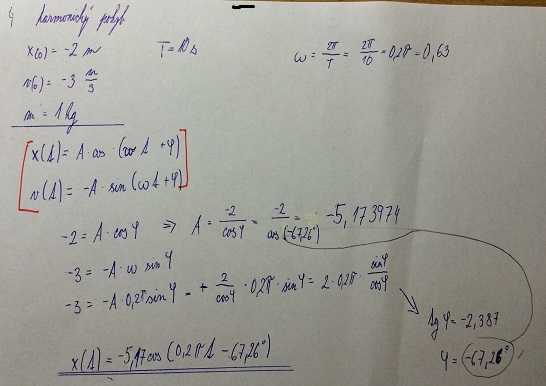 harmonický pohyb
x(0) = -2 m
T = 10 s
ω = 2π/T = 2π/10 = 0,2π = 0,63
v(0) = -3 m/s
m = 1 kg
x(t) = A · cos (ωt + φ)
v(t) = -A · sin (ωt + φ)
-2 = A · cos φ ⇒ A = -2/cos φ = -2/cos(-67,26°) = -5,173974
-3 = -A · ω sin φ
-3 = -A · 0,2π sin φ = + 2/cos φ · 0,2π · sin φ = 2 · 0,2π · sin φ/cos φ
tg φ = -2,387
φ = -67,26°
x(t) = -5,17 cos (0,2πt - 67,26°)